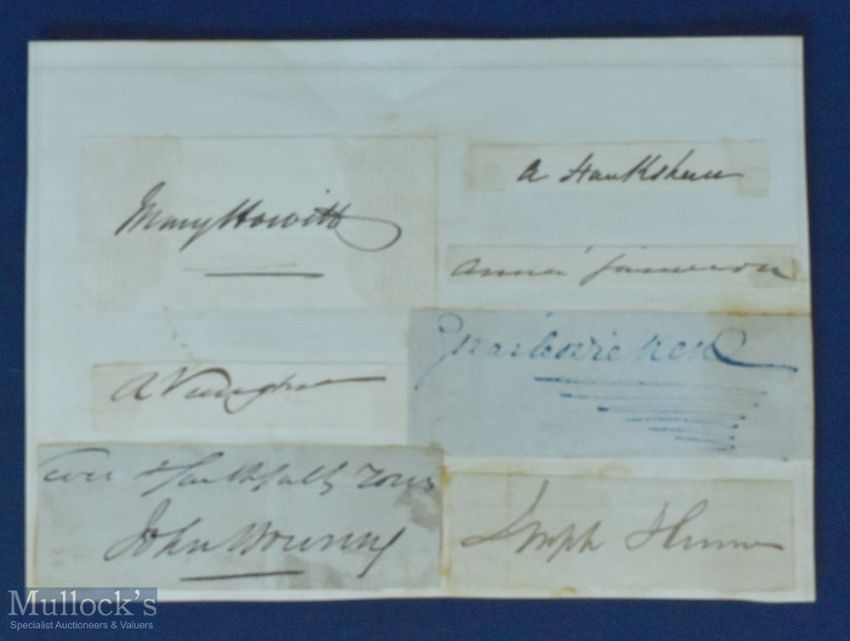 Mary Howitt
A Hawkshaw
Anna Jameson
A Vaughan
Ever Faithfully Yours
John Bowring
Joseph Hume
Mullock's
Specialist Auctioneers & Valuers